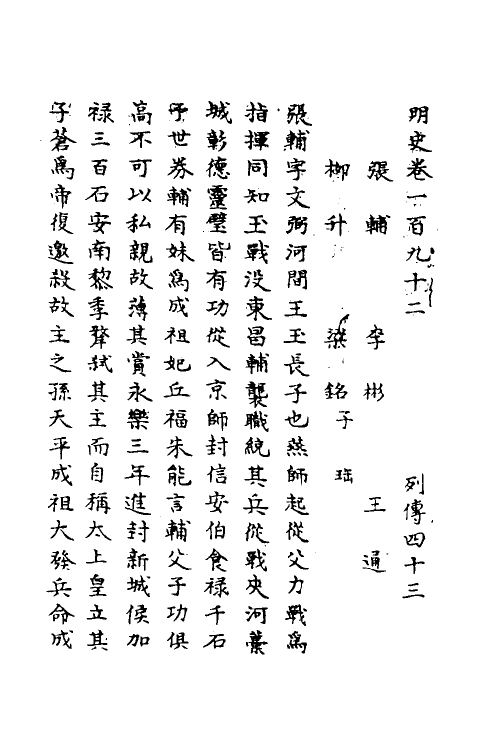 明史卷一百九十二 列傳四十三
張輔 李彬 王通
柳升 梁銘子珤
張輔字文弼河間王玉長子也燕師起從父力戰爲
指揮同知玉戰没東昌輔襲職統其兵從戰夾河藁
城彰德靈璧皆有功從入京師封信安伯食禄千石
予世券輔有妹爲成祖妃丘福朱能言輔父子功俱
高不可以私親故薄其賞永樂三年進封新城侯加
禄三百石安南黎季犛弑其主而自稱太上皇立其
子蒼爲帝復邀殺故主之孫天平成祖大發兵命成